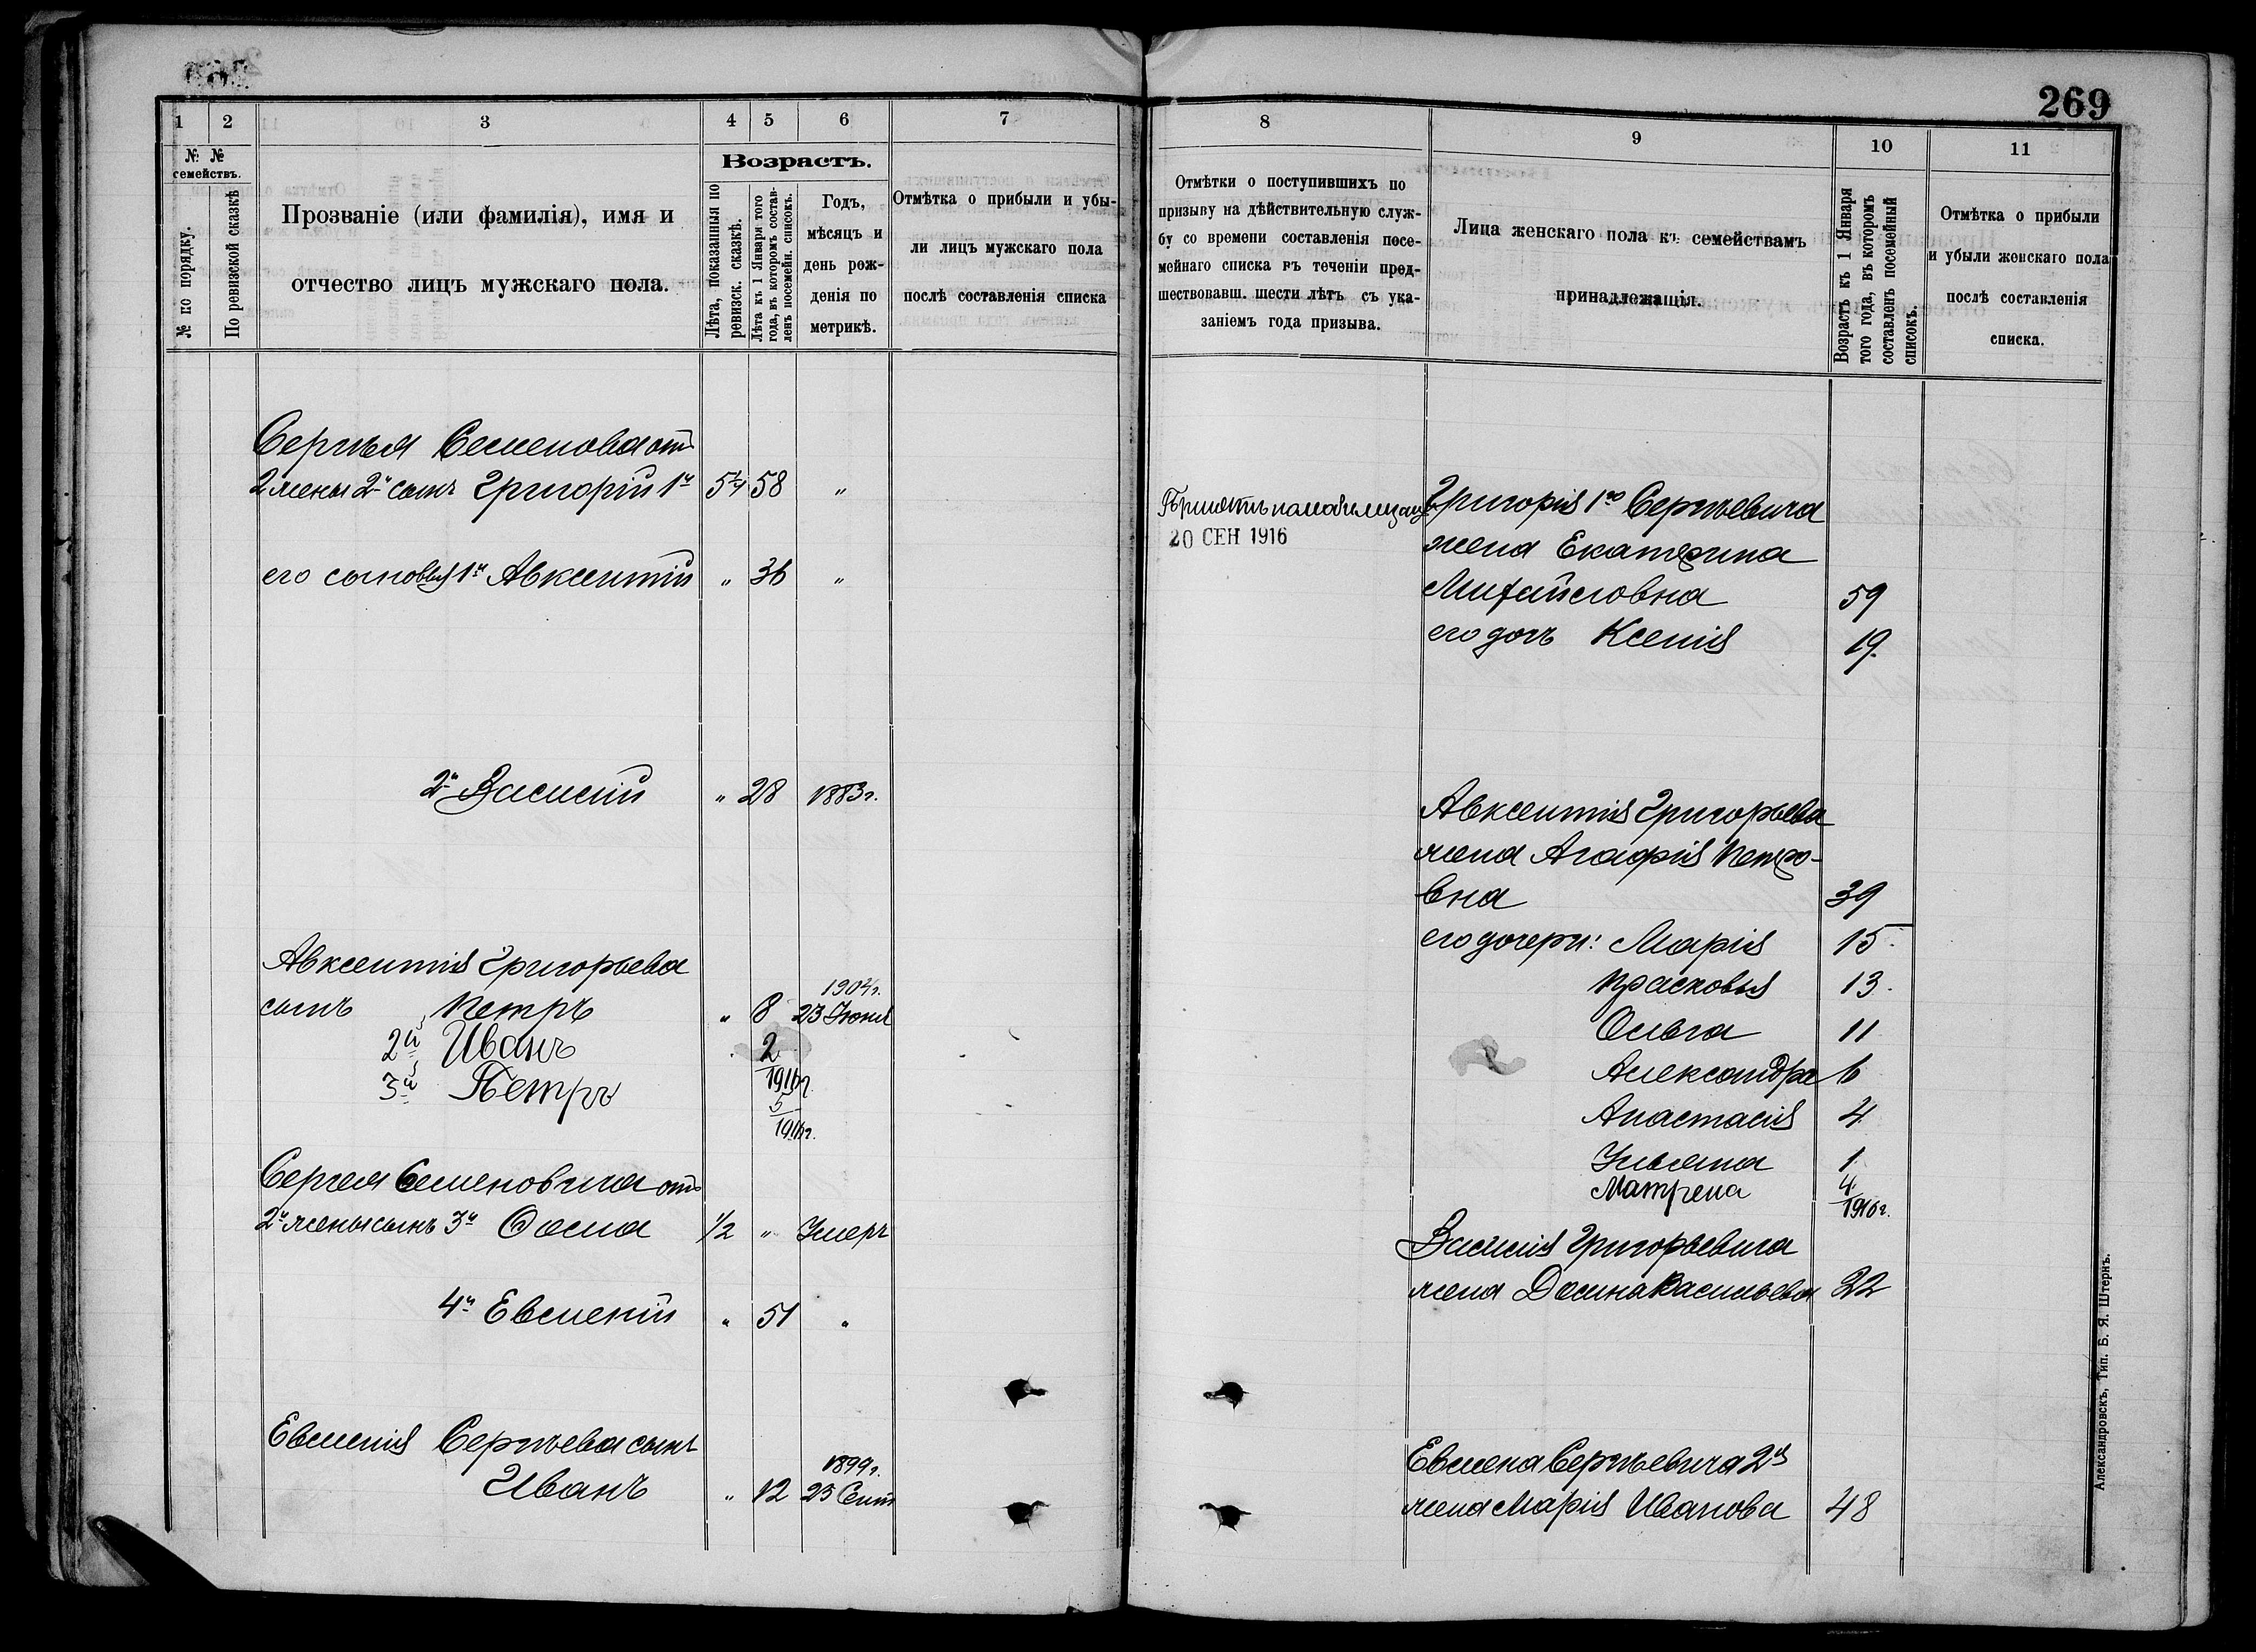 269
1 2 3 4 5 6 7
№ № семействъ.
№ по порядку.
По ревизской сказкѣ
Прозваніе (или фамилія), имя и
отчество лицъ мужскаго пола.
Возрастъ.
Лѣта, показанныя по
ревизск. сказкѣ.
Лѣта къ 1 Января того
года, въ которомъ состав-
ленъ посемейн. списокъ.
Годъ,
мѣсяцъ и
день рож-
денія по
метрикѣ.
Отмѣтка о прибыли и убы-
ли лицъ мужскаго пола
послѣ составленія списка
Сергѣя Семенова отъ
2 жены 2й сынъ Григорій 1й 58 "
его сыновья 1й Авксентій " 36 "
2й Василій " 28 1883 г.
Авксентія Григорьева
сынъ Петръ " 8 1904 г. 23 Іюня
2й Иванъ 2/1916 г.
3й Петръ 5/1916 г.
Сергея Семеновича отъ
2й жены сынъ 3й 1/2 " Умеръ
4й Евменій " 51 "
Евменія Сергѣева сынъ
Иванъ " 12 1899 г. 25 Сент
8 9 10 11
Отмѣтки о поступившихъ по
призыву на дѣйствительную служ-
бу со времени составленія посе-
мейнаго списка въ теченіи пред-
шествовавш. шести лѣтъ съ ука-
заніемъ года призыва.
Лица женскаго пола къ семействамъ
принадлежащія.
Возрастъ къ 1 Января
того года, въ которомъ
составленъ посемейный
списокъ.
Отмѣтка о прибыли
и убыли женскаго пола
послѣ составленія
списка.
20 СЕН 1916
Григорія 1го Сергѣевича
жена Екатерина
Михайловна 59
его дочь Ксенія 19.
Авксентія Григорьева
жена Агафія Петро-
вна 39
его дочери: Марія 15.
Прасковья 13.
Ольга 11
Александра 6
Анастасія 4
Ульяна 1
Матрена 4/1916 г.
Василія Григорьевича
жена Домна Васильева 22
Евмена Сергѣевича 2я
жена Марія Иванова 48
Александровскъ, Тип. Б. Я. Штернъ.